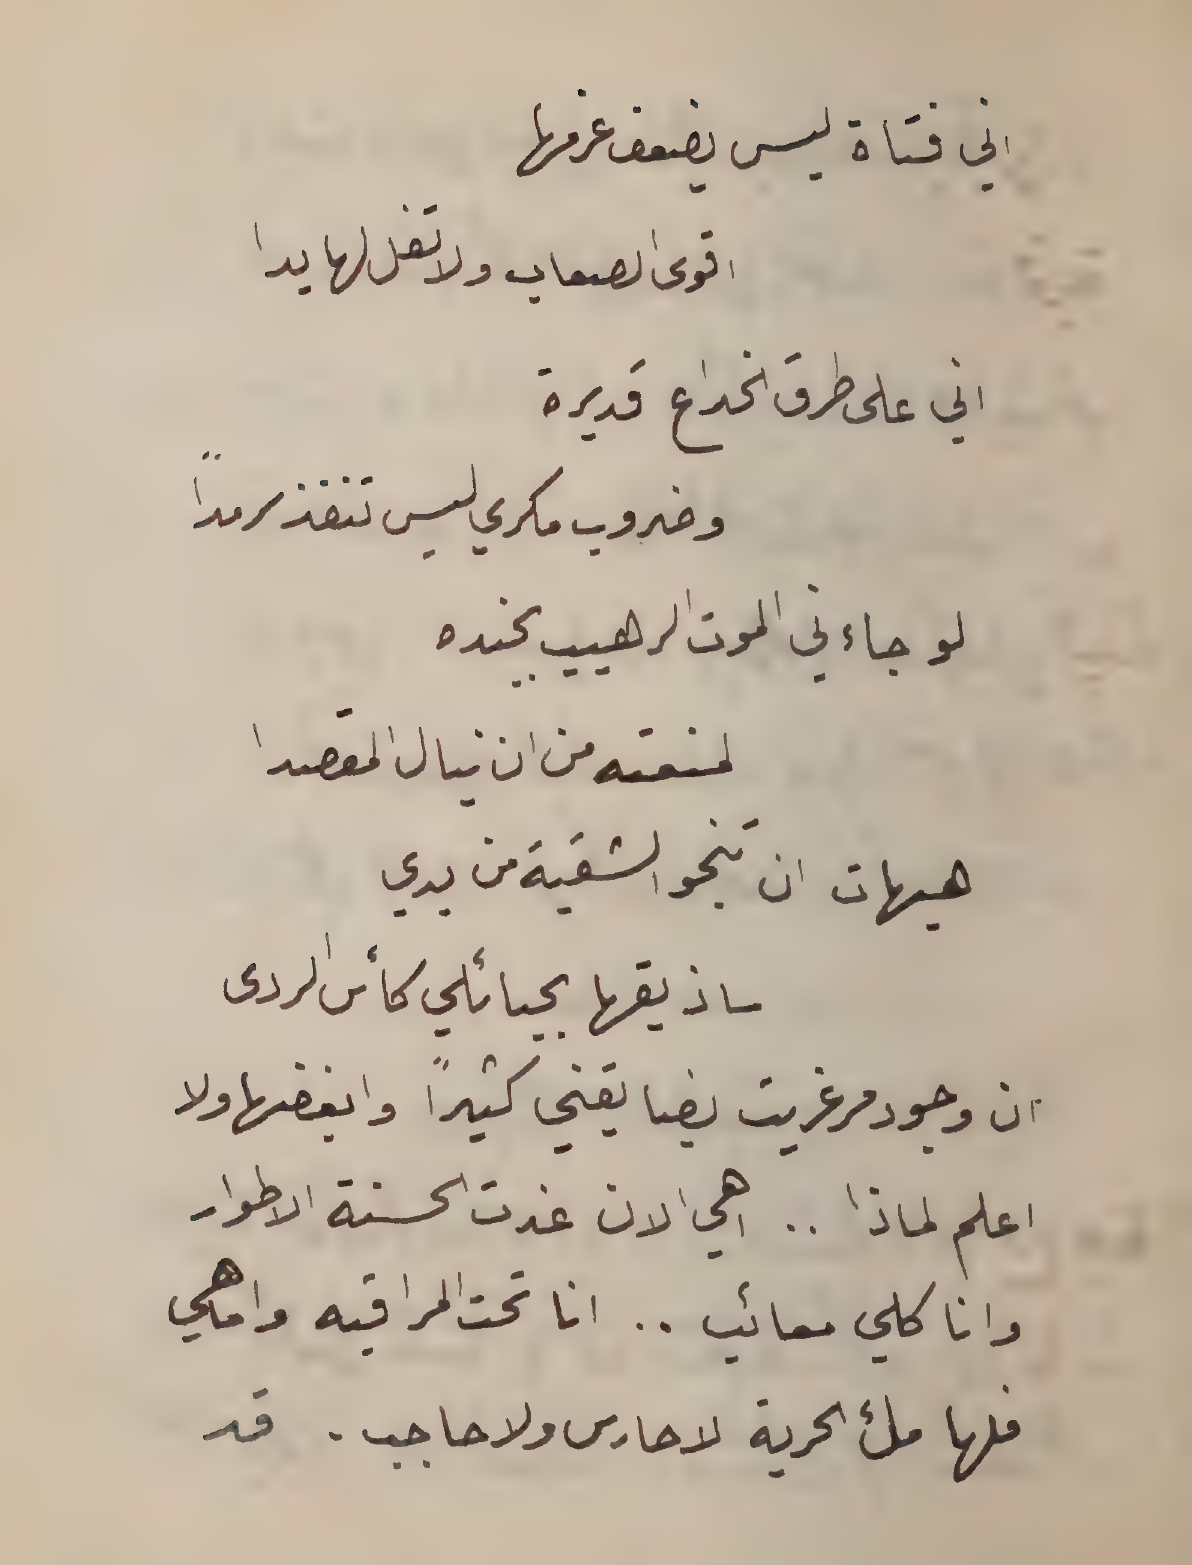 اني فتاة ليس يضعف عزمها
اقوى الصعاب ولا تفل لها يدا
اني على طرق الخداع قديرة
وضروب مكري ليس تنفذ سرمداً
لو جاءني الموت الرهيب بجنده
لمنعته من ان ينال المقصدا
هيهات ان تنجو الشقية من يدي
ساذيقها بحبائلي كأس الردى
ان وجود مرغريت يضايقني كثيراً وابغضها ولا
اعلم لماذا .. اهي الان غدت الحسنة الاطوار
وانا كلي معائب .. انا تحت المراقبه واما هي
فلها ملئ الحرية لا حارس ولا حاجب . قد